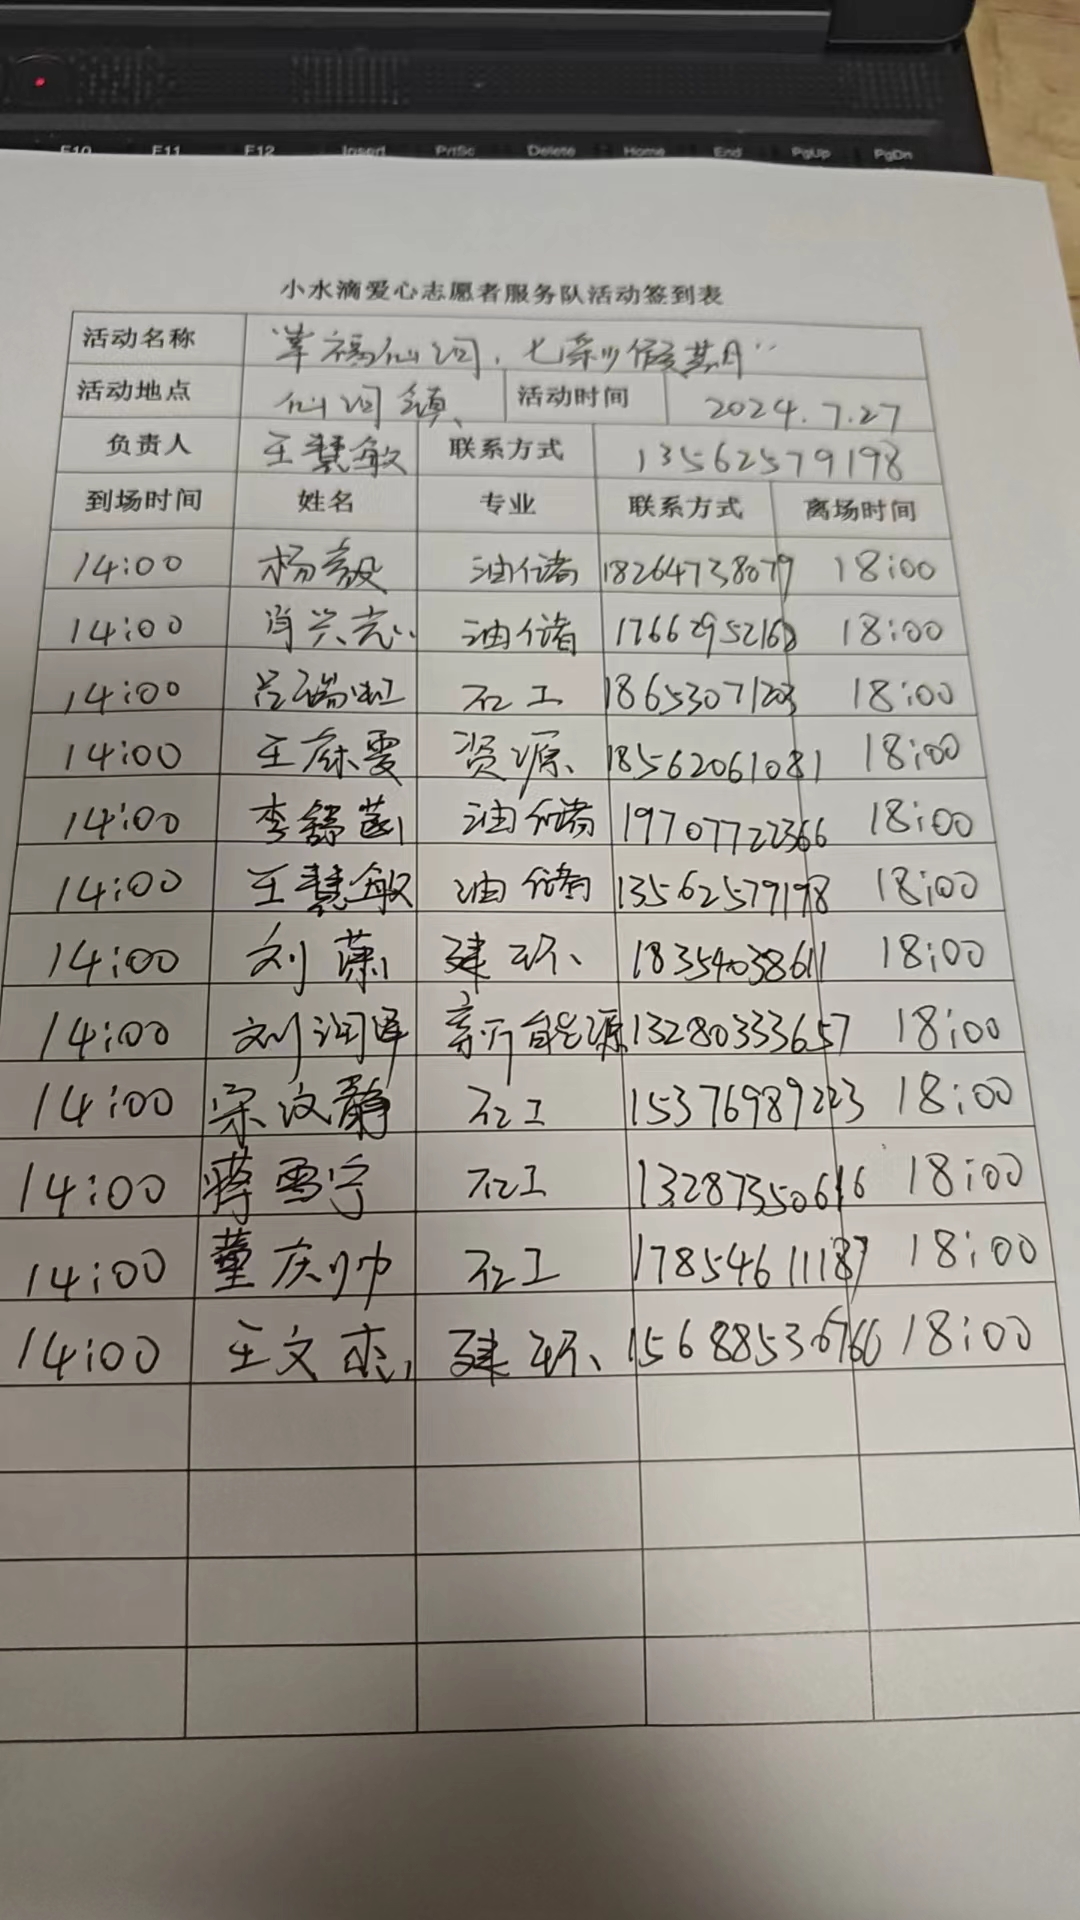 F10 F11 F12 Insert PrtSc Delete Home End PgUp PgDn
小水滴爱心志愿者服务队活动签到表
活动名称 "幸福仙河,七彩假期"
活动地点 仙河镇 活动时间 2024.7.27
负责人 王慧敏 联系方式 13562579198
到场时间 姓名 专业 联系方式 离场时间
14:00 杨毅 油储 18264738079 18:00
14:00 肖兴志 油储 17662952168 18:00
14:00 吕瑞虹 石工 18653071203 18:00
14:00 王麻雯 资源 18562061081 18:00
14:00 李馨菡 油储 19707722366 18:00
14:00 王慧敏 油储 13562579198 18:00
14:00 刘潇 建环 18354038611 18:00
14:00 刘润泽 新能源 13280333657 18:00
14:00 宋汶静 石工 15376989223 18:00
14:00 蒋雪宁 石工 13287350616 18:00
14:00 董庆帅 石工 17854611187 18:00
14:00 王文杰 建环 15688536760 18:00